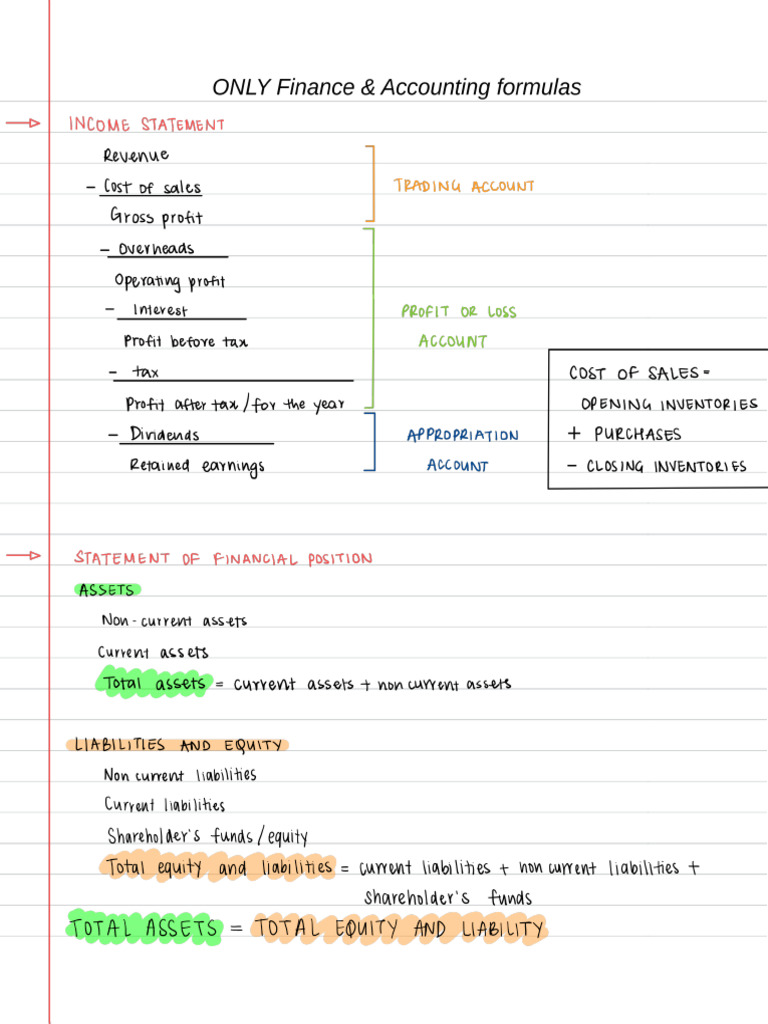 ONLY Finance & Accounting formulas
INCOME STATEMENT
Revenue
- Cost of sales
TRADING ACCOUNT
Gross profit
- Overheads
Operating profit
- Interest
PROFIT OR LOSS
ACCOUNT
Profit before tax
- tax
Profit after tax/for the year
- Dividends
APPROPRIATION
ACCOUNT
Retained earnings
COST OF SALES =
OPENING INVENTORIES
+ PURCHASES
- CLOSING INVENTORIES
STATEMENT OF FINANCIAL POSITION
ASSETS
Non-current assets
Current assets
Total assets = current assets + non current assets
LIABILITIES AND EQUITY
Non current liabilities
Current liabilities
Shareholder's funds/equity
Total equity and liabilities = current liabilities + non current liabilities +
shareholder's funds
TOTAL ASSETS = TOTAL EQUITY AND LIABILITY